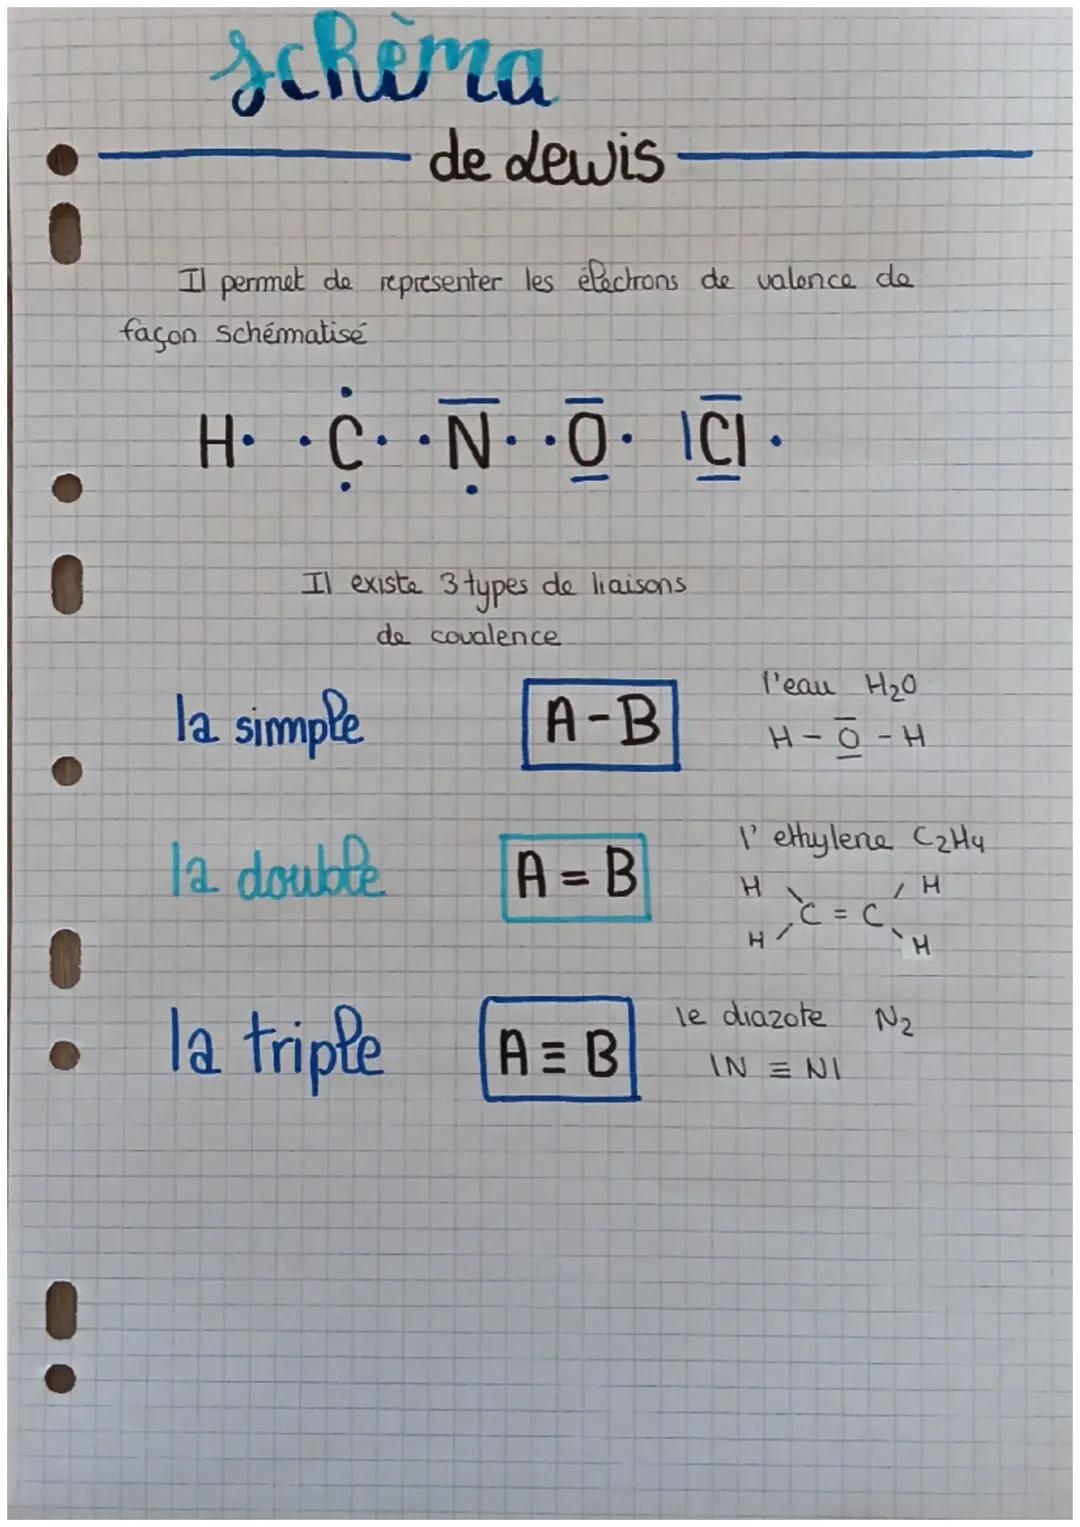 schèma
de Lewis
Il permet de representer les électrons de valence de
façon schématisé
H· ·C· ·N· ·O· |Cl·
Il existe 3 types de liaisons
de covalence
la simple
A-B
l'eau H₂O
H-O-H
la double
A=B
l'ethylene C₂H₄
H H
C = C
H H
la triple
A≡B
le diazote N₂
|N≡N|